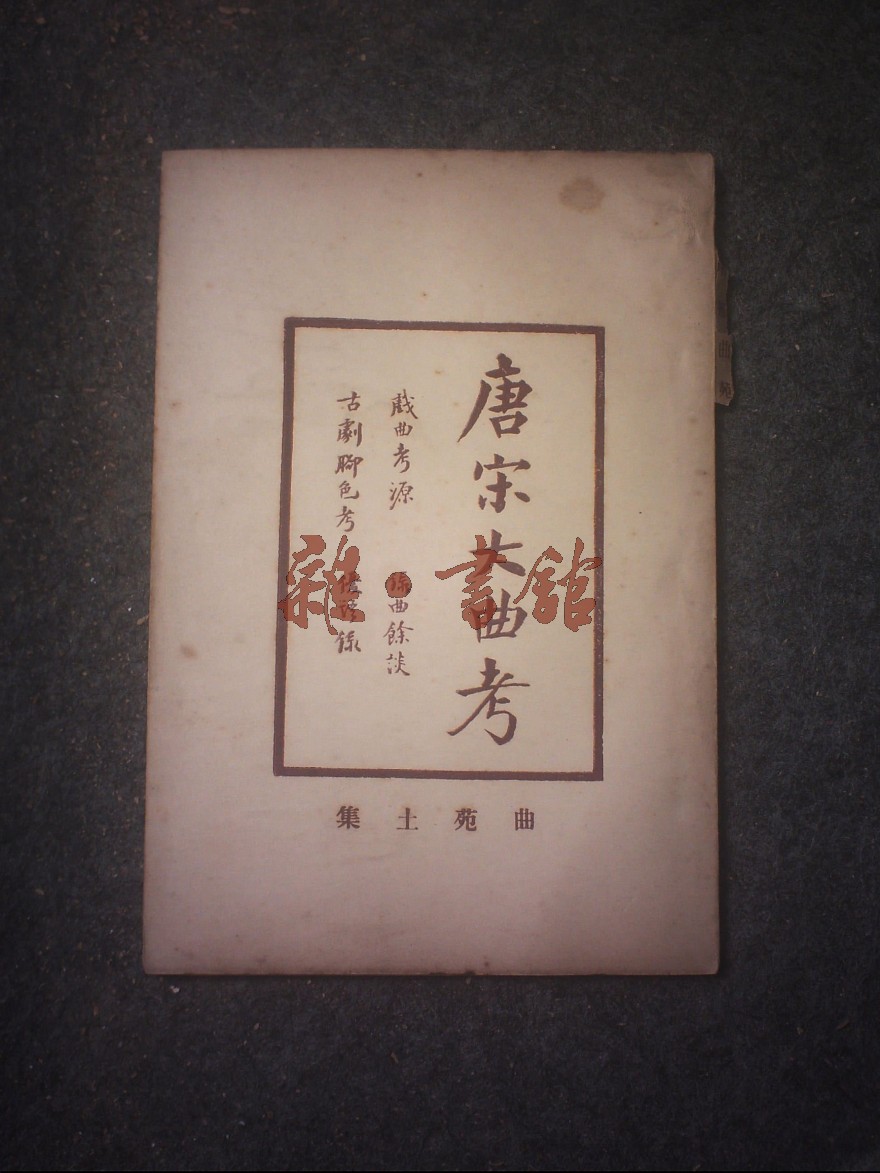 唐宋大曲考
戲曲考源 录曲餘談
古劇腳色考 優語錄
曲苑土集
雜·書館
曲苑